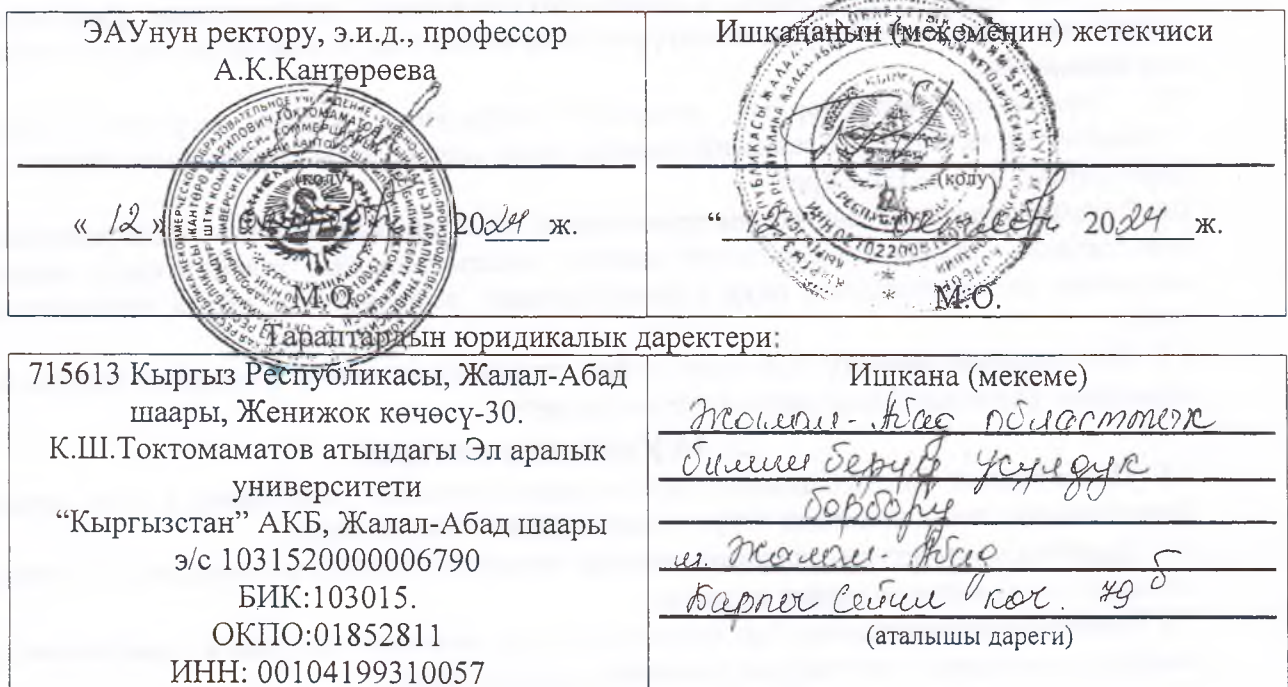 ЭАУнун ректору, э.и.д., профессор
А.К.Кантөрөева
(колу
« 12 » 2024 ж.
М.О.
Ишкананын (мекеменин) жетекчиси
(колу
“ 12 ” 2024 ж.
М.О.
Тараптардын юридикалык даректери:
715613 Кыргыз Республикасы, Жалал-Абад
шаары, Женижок көчөсү-30.
К.Ш.Токтомаматов атындагы Эл аралык
университети
“Кыргызстан” АКБ, Жалал-Абад шаары
э/с 1031520000006790
БИК:103015.
ОКПО:01852811
ИНН: 00104199310057
Ишкана (мекеме)
Жалал-Абад областтык
билим берүү усулдук
борбору
ш. Жалал-Абад
Барпы көч. 79 б
(аталышы дареги)